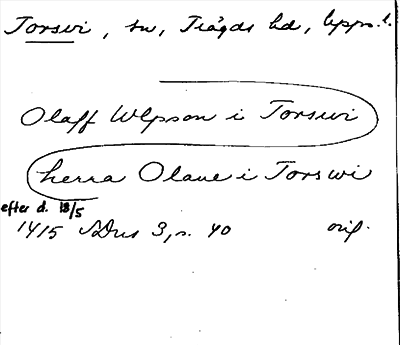 Torswi, sn, Trögds hd, Upps. l.
Olaff Wlpson i Torswi
herra Olaue i Torswi
efter d. 18/5
1415 SDns 3, s. 40 orig.